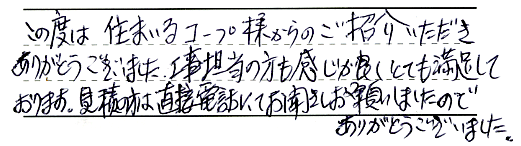 この度は 住まいるコープ様からのご紹介いただき
ありがとうございました。工事担当の方も感じが良くとても満足して
おります。見積の方は直接電話にてお聞きしお願いしましたので
ありがとうございました。